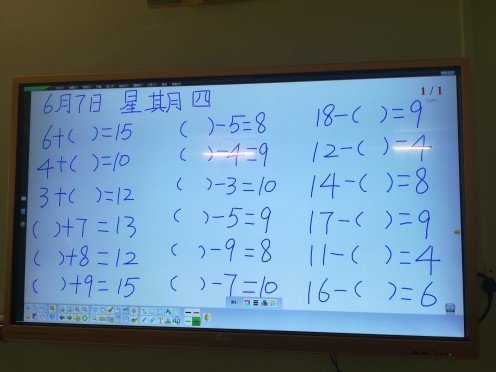 6月7日 星期四
1/1
6+( )=15
( )-5=8
18-( )=9
4+( )=10
( )-4=9
12-( )=4
3+( )=12
( )-3=10
14-( )=8
( )+7=13
( )-5=9
17-( )=9
( )+8=12
( )-9=8
11-( )=4
( )+9=15
( )-7=10
16-( )=6